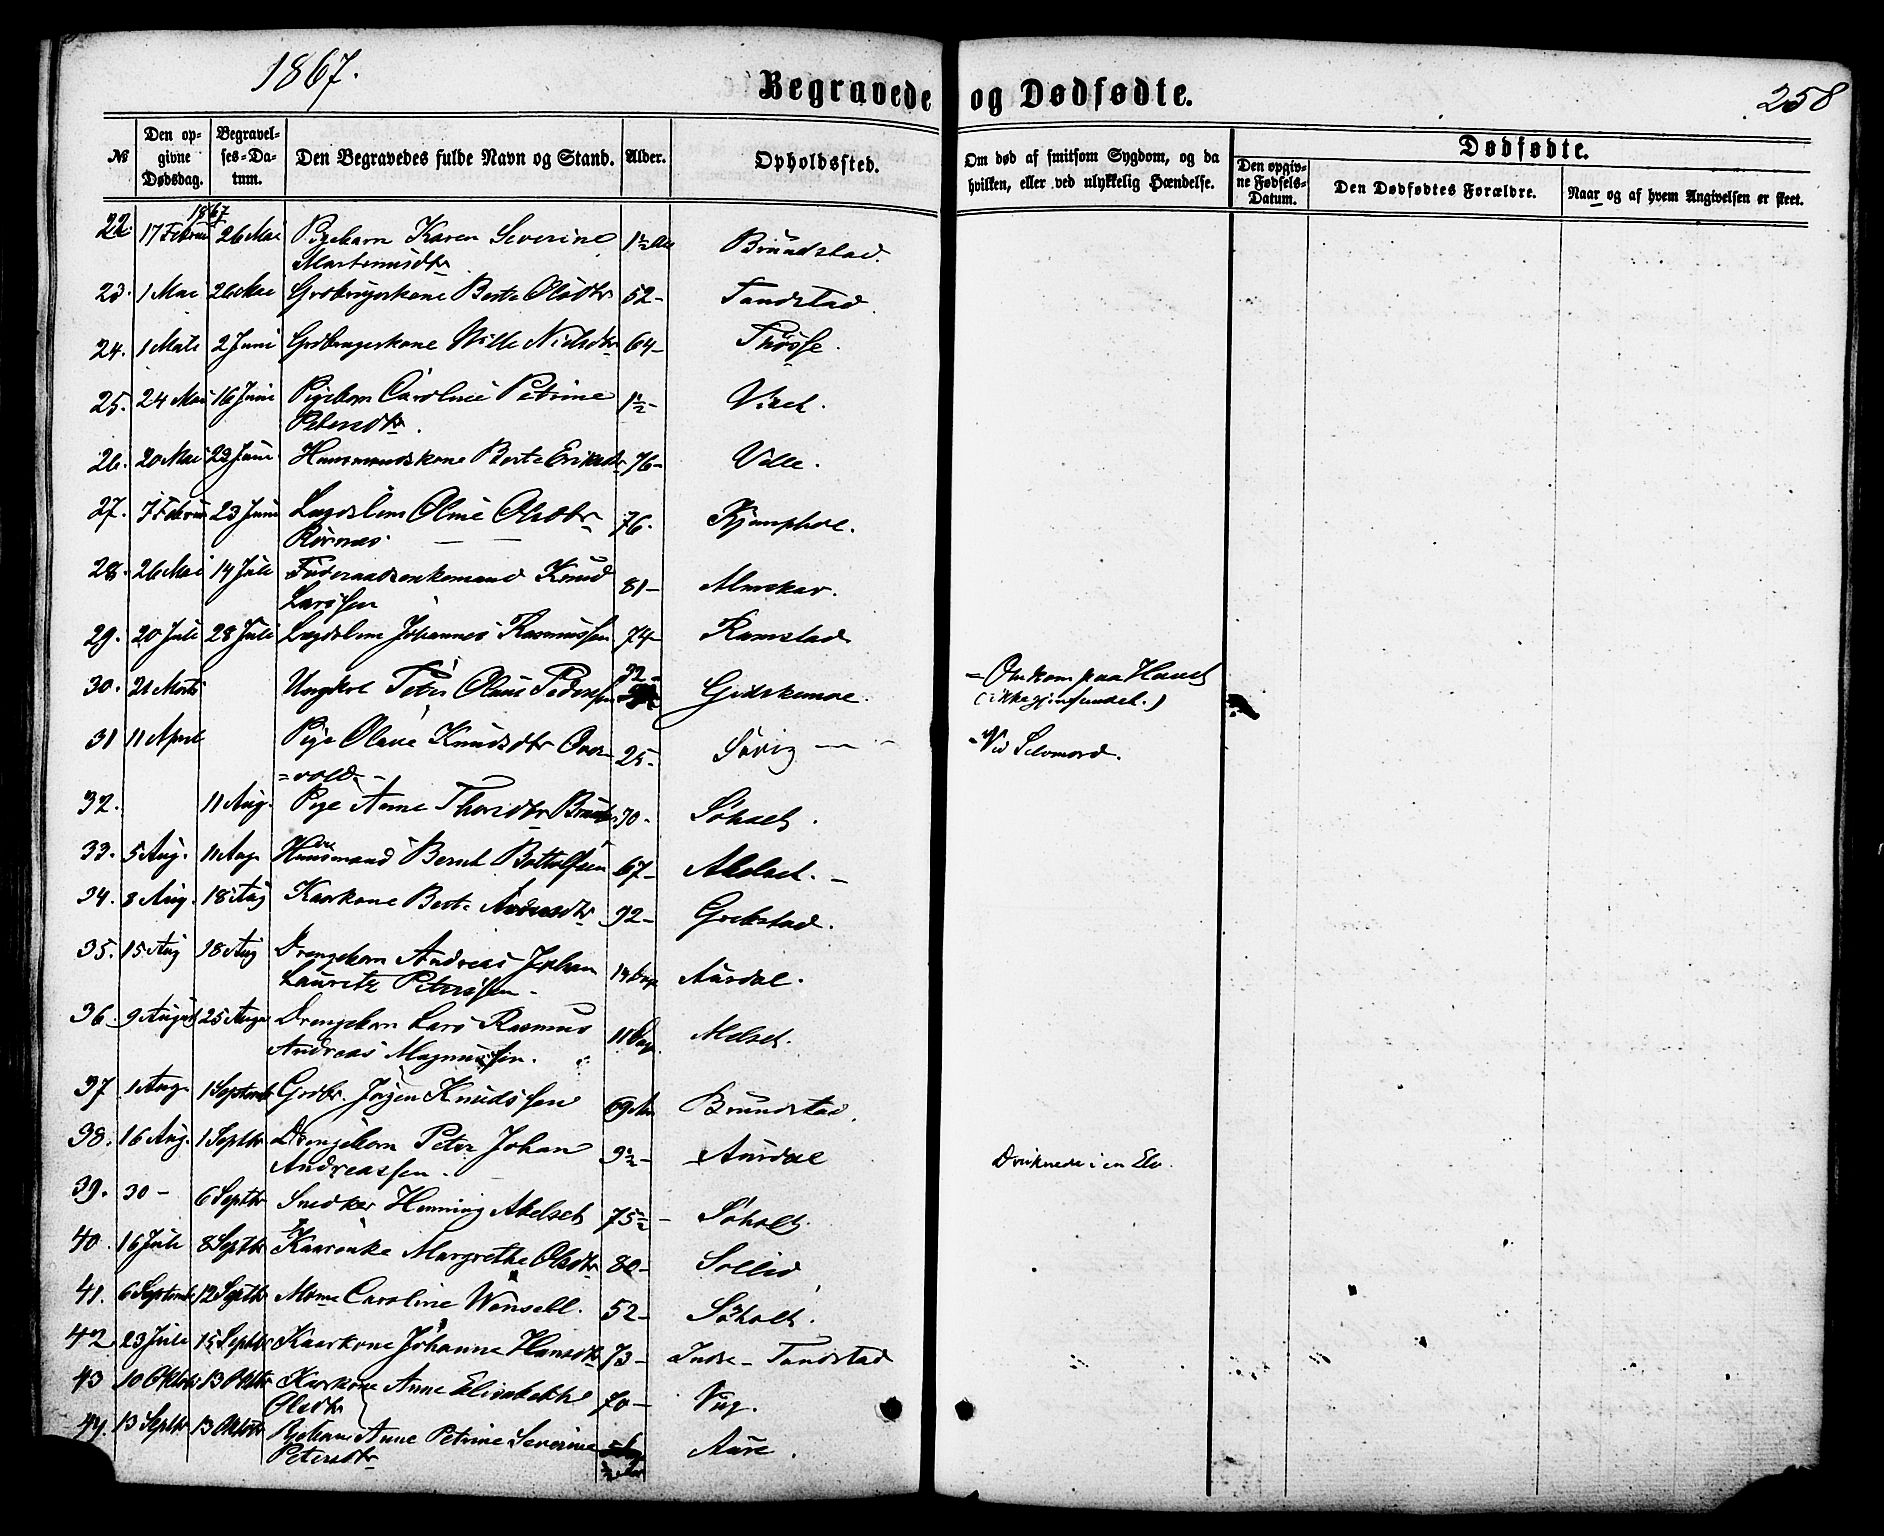 1867.
Begravede og Dødfødte.
258
№
Den op-
givne
Dødsdag.
Begravel-
ses-Da-
tum.
Den Begravedes fulde Navn og Stand.
Alder.
Opholdssted.
Om død af smitsom Sygdom, og da
hvilken, eller ved ulykkelig Hændelse.
Dødfødte.
Den opgiv-
ne Fødsels-
Datum.
Den Dødfødtes Forældre.
Naar og af hvem Angivelsen er skeet.
1867
22. 17 Februar 26 Mai Pigebarn Karen Severine 1½ Brundstad.
Martinusdtr
23. 1 Mai 26 Mai Berte Olsdtr 52- Tandstad.
24. 1 2 Juni Nielsdtr 64-
25. 24 Mai 16 Juni Pigebarn Caroline Petrine 1½-
Petersdtr.
26. 20 Mai 23 Juni Huusmandskone Berte Eriksdtr 76-
27. 7 Februar 23 Juni Lægdslem Oline Olsdtr 76.
28. 26 Mai 14 Juli Knud 81- Almskar.
Larssen
29. 20 Juli 28 Juli Lægdslem Johannes Rasmussen 74- Ramstad
30. 21 Marts Ungkrl Peter Olaus Pedersen 32- - Omkom paa Havet
(ikke gjenfundet.)
31 11 April Pige Olave Knudsdtr Over- 25- Søvig - Ved Selvmord.
=vold-
32. 11 Aug. Pige Anne 70- Søholt.
33. 5 Aug. 11 Aug. Huusmand Bernt Bottolfsen 67- Akslset.-
34. 8 Aug. 18 Aug Kaarkone Berte Andreasdtr 72- Grebstad.
35. 15 Aug 18 Aug Drengebarn Andreas Johan 14 Dage Aursdal.
Lauritz Peterssen-
36. 9 August 25 Aug. Drengebarn Lars Rasmus 11 Dage
Andreas Magnussen.
37 1 Aug. 1 Septembr Grdbr. Jørgen Knudssen 69 Brundstad.
38. 16 Aug. 1 Septbr Drengebarn Peter Johan 3½- Aursdal Druknede i en Elv.
Andreassen-
39. 30 - 6 Septbr Snedker Henning Akslset 75½- Søholt.
40. 16 Juli 8 Septbr Kaarenke Margrethe Olsdtr 80- Sollid
41. 6 Septembr 12 Septbr Caroline 52- Søholt.
42. 23 Juli 15 Septbr Kaarkone Johanne Hansdtr 73- Indre- Tandstad
43 10 Oktbr 13 Oktbr Kaarkone Anne Elisabeth 70-
Olsdtr
44. 13 Septbr 13 Oktbr Anne Petrine Severine Aure.
Petersdtr